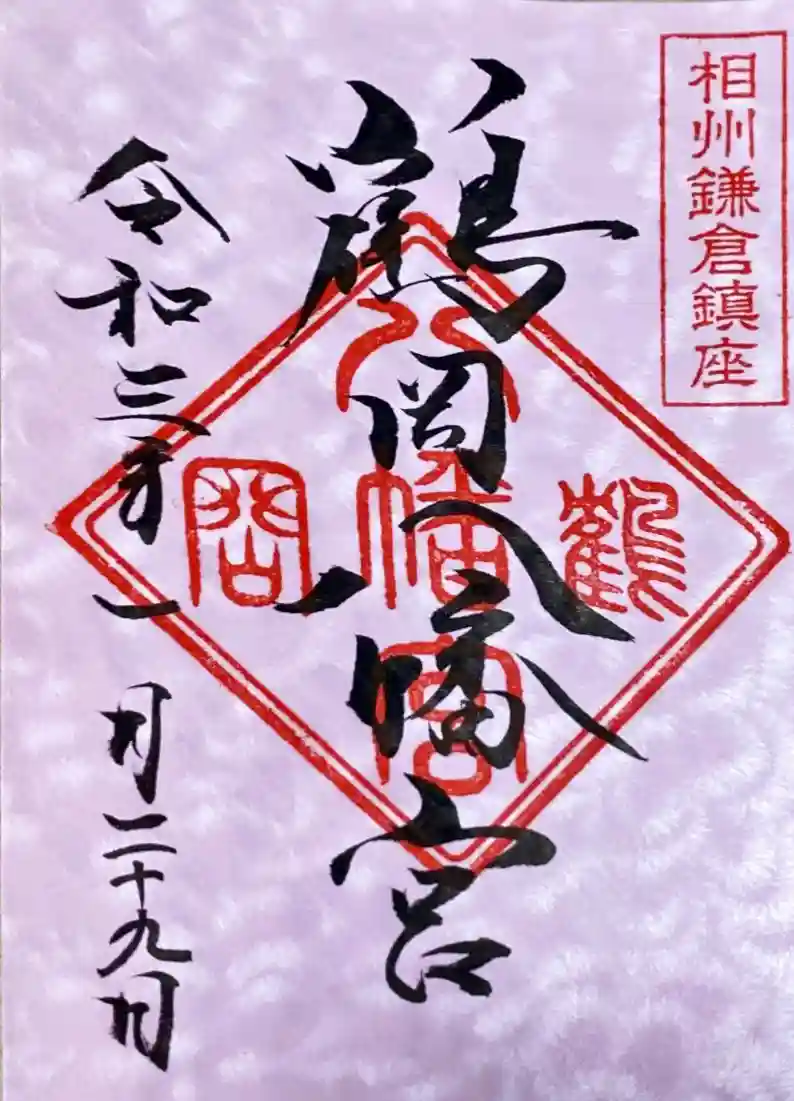 相州鎌倉鎮座
鶴岡八幡宮
鶴岡八幡宮
令和三年一月二十九日